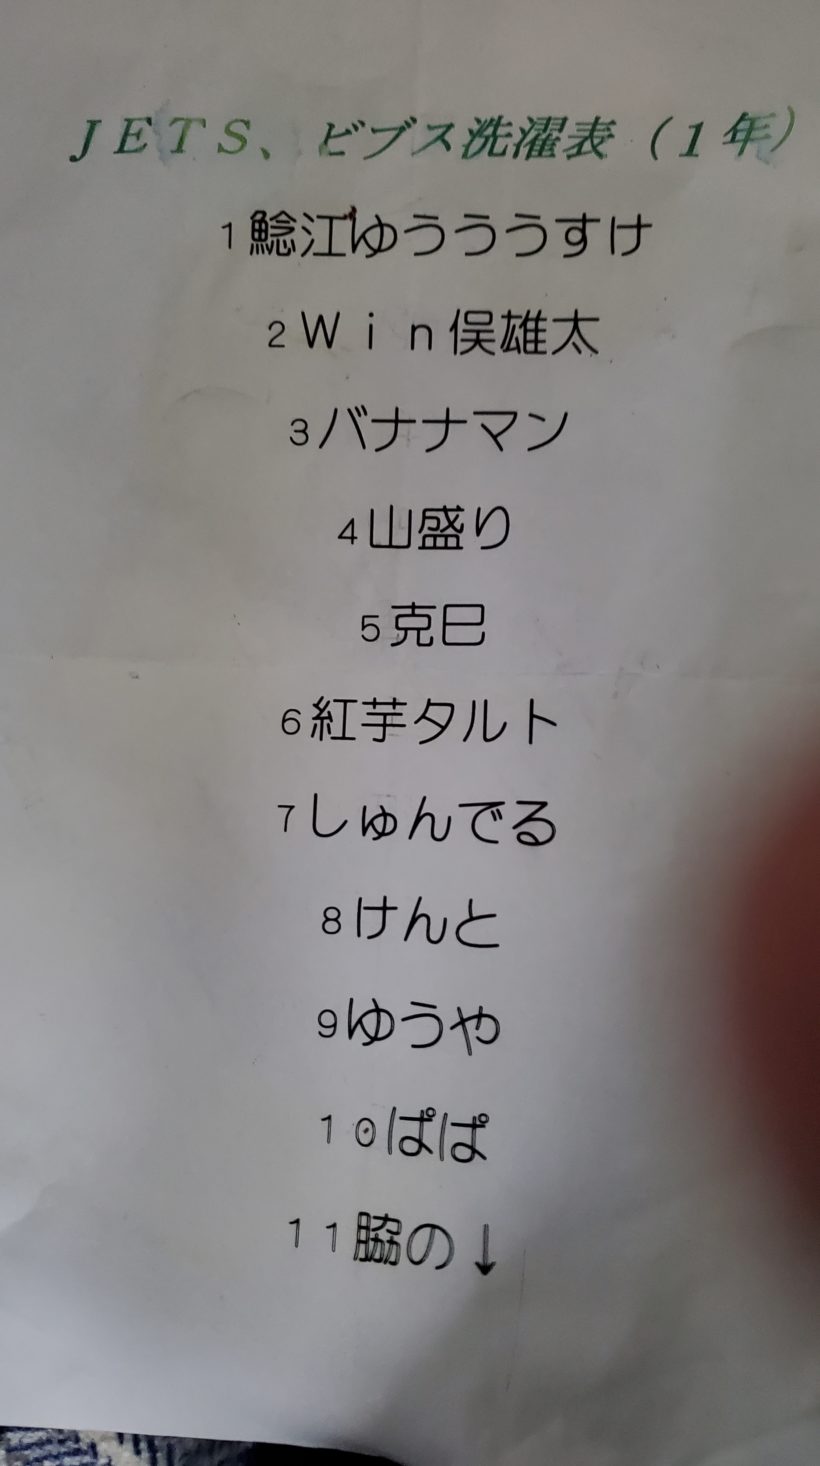 JETS、ビブス洗濯表（1年）
1鯰江ゆうううすけ
2Win俣雄太
3バナナマン
4山盛り
5克巳
6紅芋タルト
7しゅんでる
8けんと
9ゆうや
10ぱぱ
11脇の↓